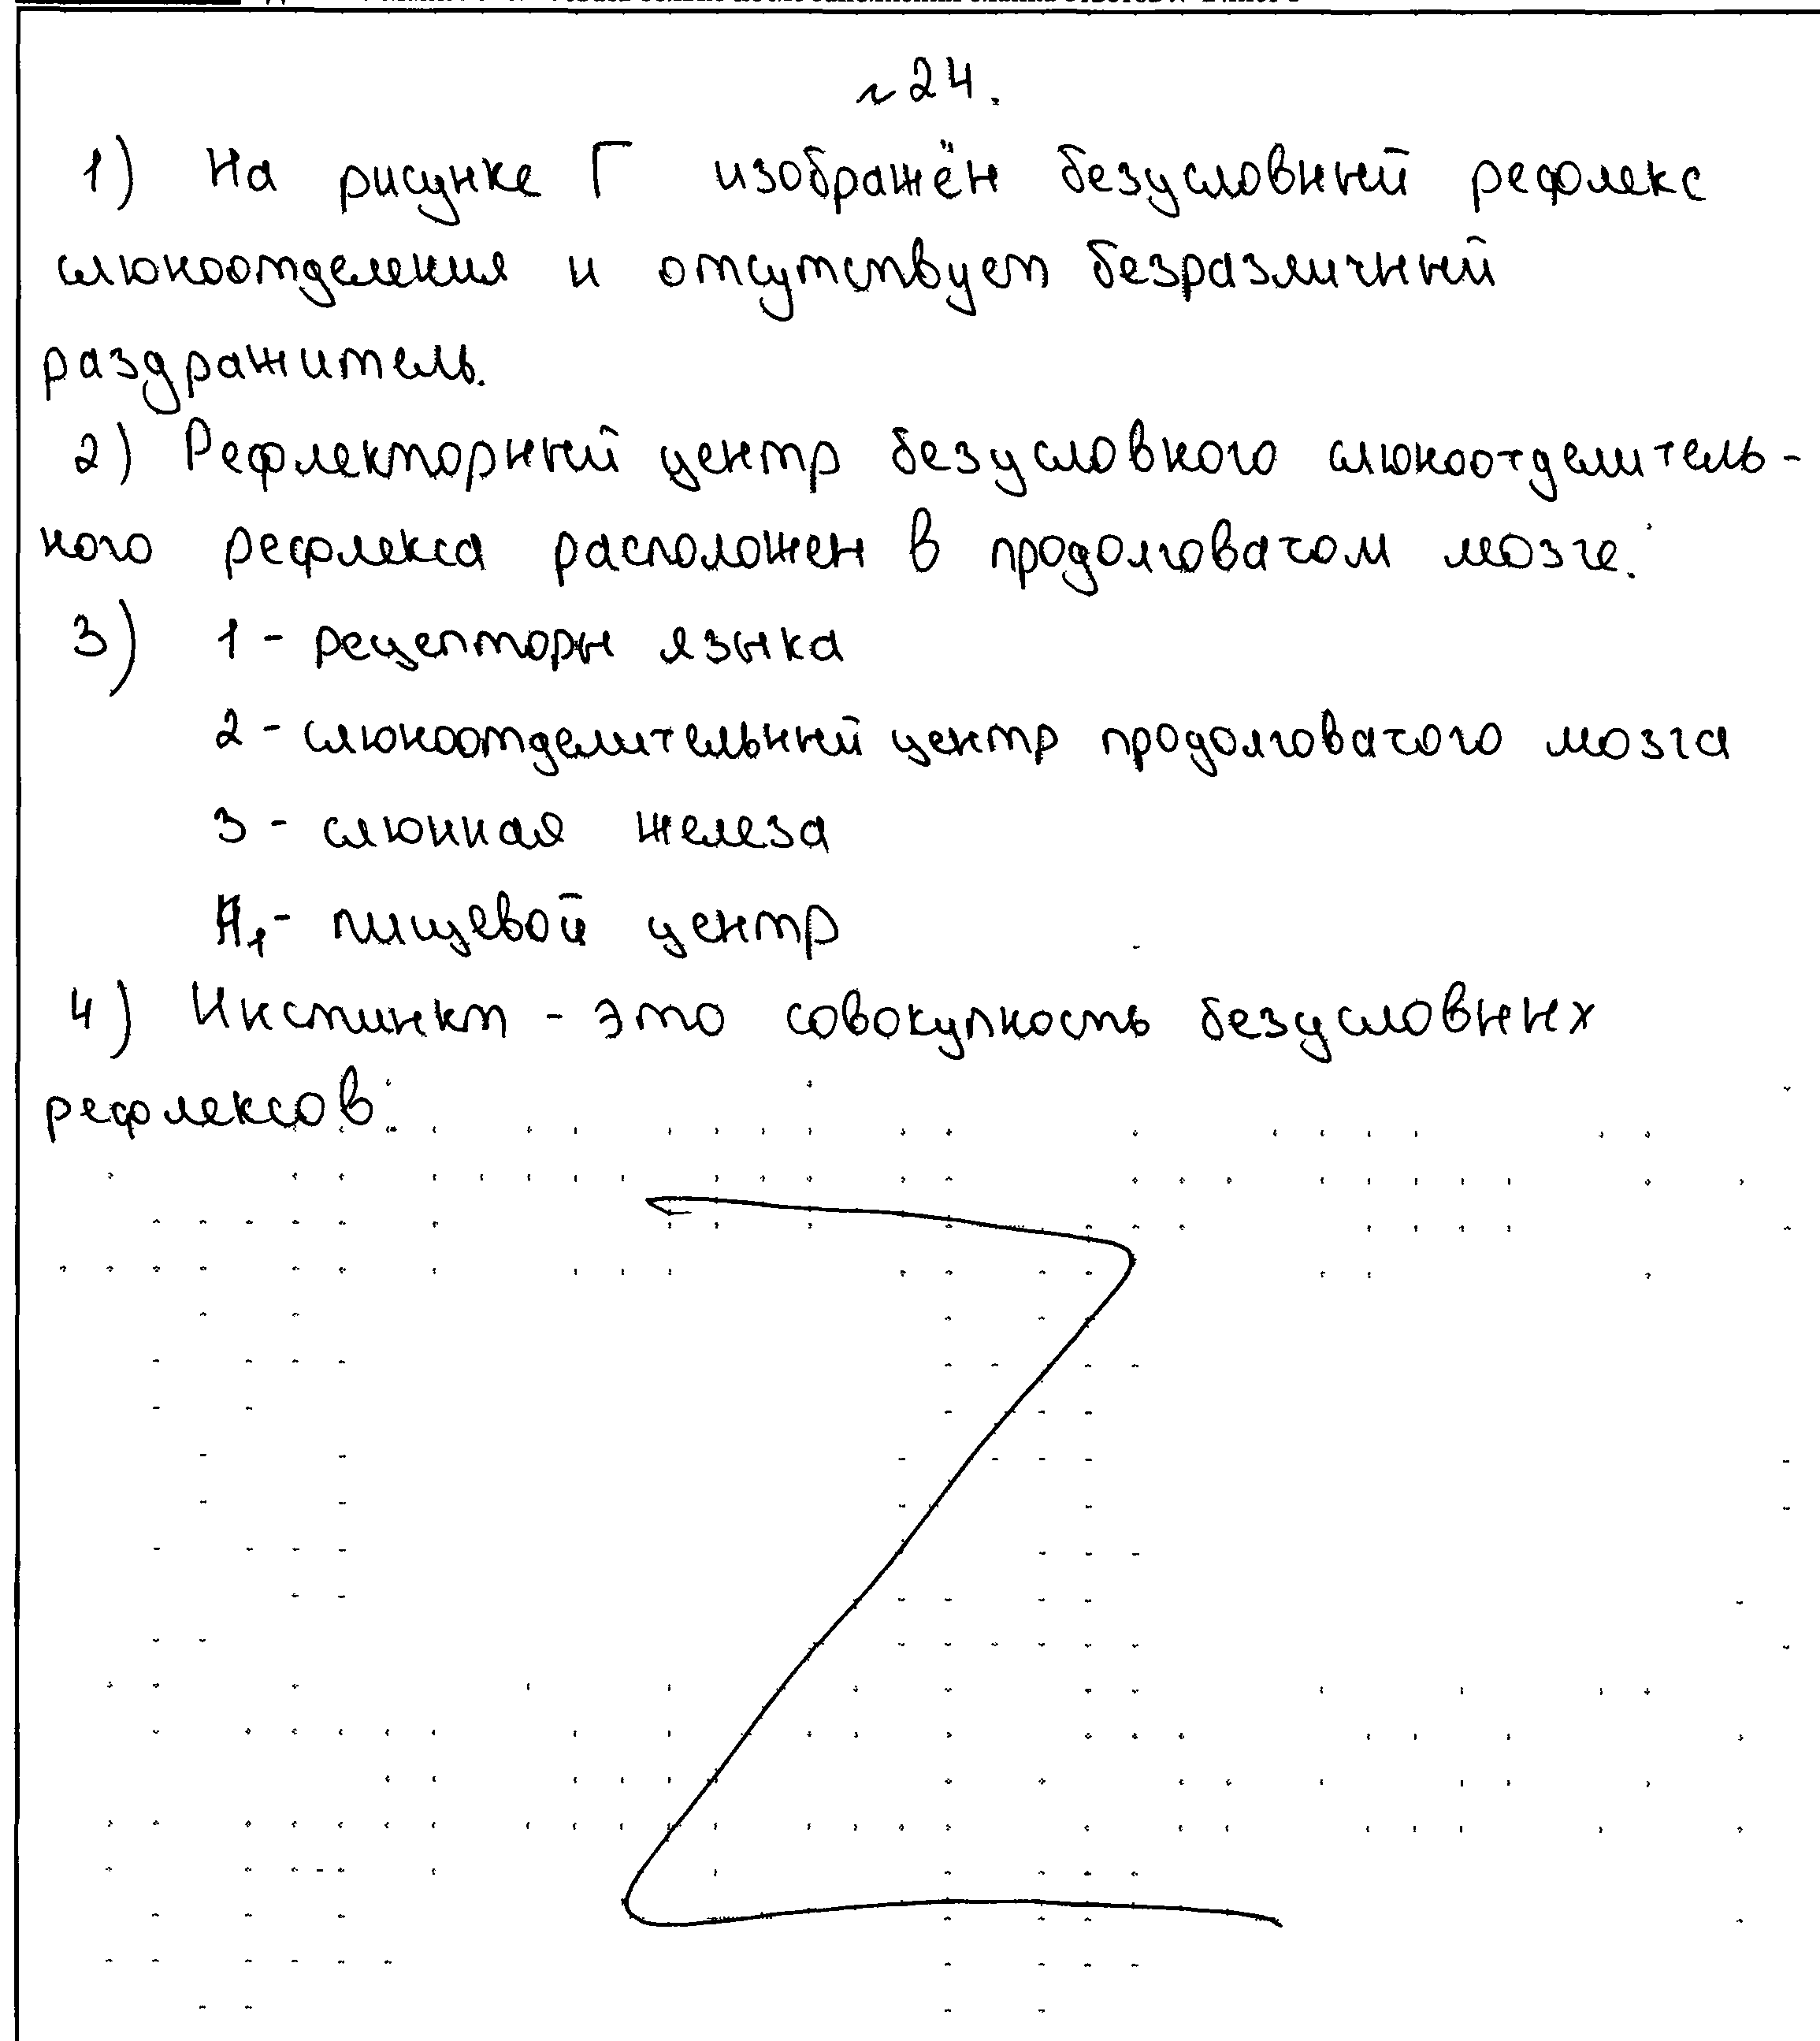 №24.
1) На рисунке Г изображён безусловный рефлекс
слюноотделения и отсутствует безразличный
раздражитель.
2) Рефлекторный центр безусловного слюноотделитель-
ного рефлекса расположен в продолговатом мозге.
3) 1 - рецепторы языка
2 - слюноотделительный центр продолговатого мозга
3 - слюнная железа
А1 - пищевой центр
4) Инстинкт - это совокупность безусловных
рефлексов.